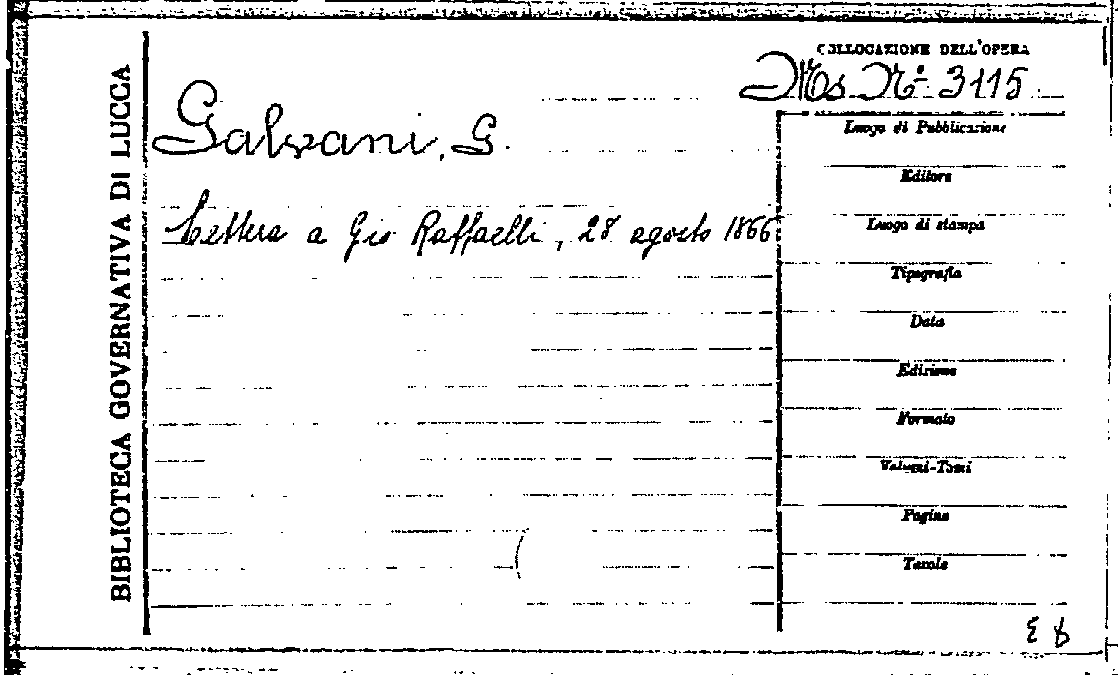 BIBLIOTECA GOVERNATIVA DI LUCCA
COLLOCAZIONE DELL'OPERA
Ms. N.º 3115
Galvani, G.
Lettera a Gio Raffaelli, 28 agosto 1866
Luogo di Pubblicazione
Editore
Luogo di stampa
Tipografia
Data
Edizione
Formato
Volumi-Tomi
Pagine
Tavole